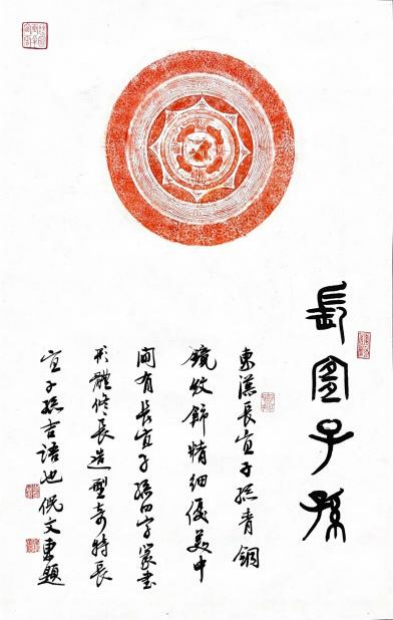 長宜子孫
東漢長宜子孫青銅
鏡紋飾精細優美中
間有長宜子孫四字篆書
形體修長造型奇特長
宜子孫吉語也倪文東題